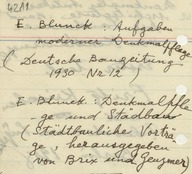 4211
E. Blunck: Aufgaben
moderner Denkmalpflege
(Deutsche Bauzeitung
1930 Nr. 12)
E. Blunck: Denkmalpfle
ge und Stadtbau
(Städtbauliche Vorträ
ge, herausgegeben
von Brix und Genzmer)